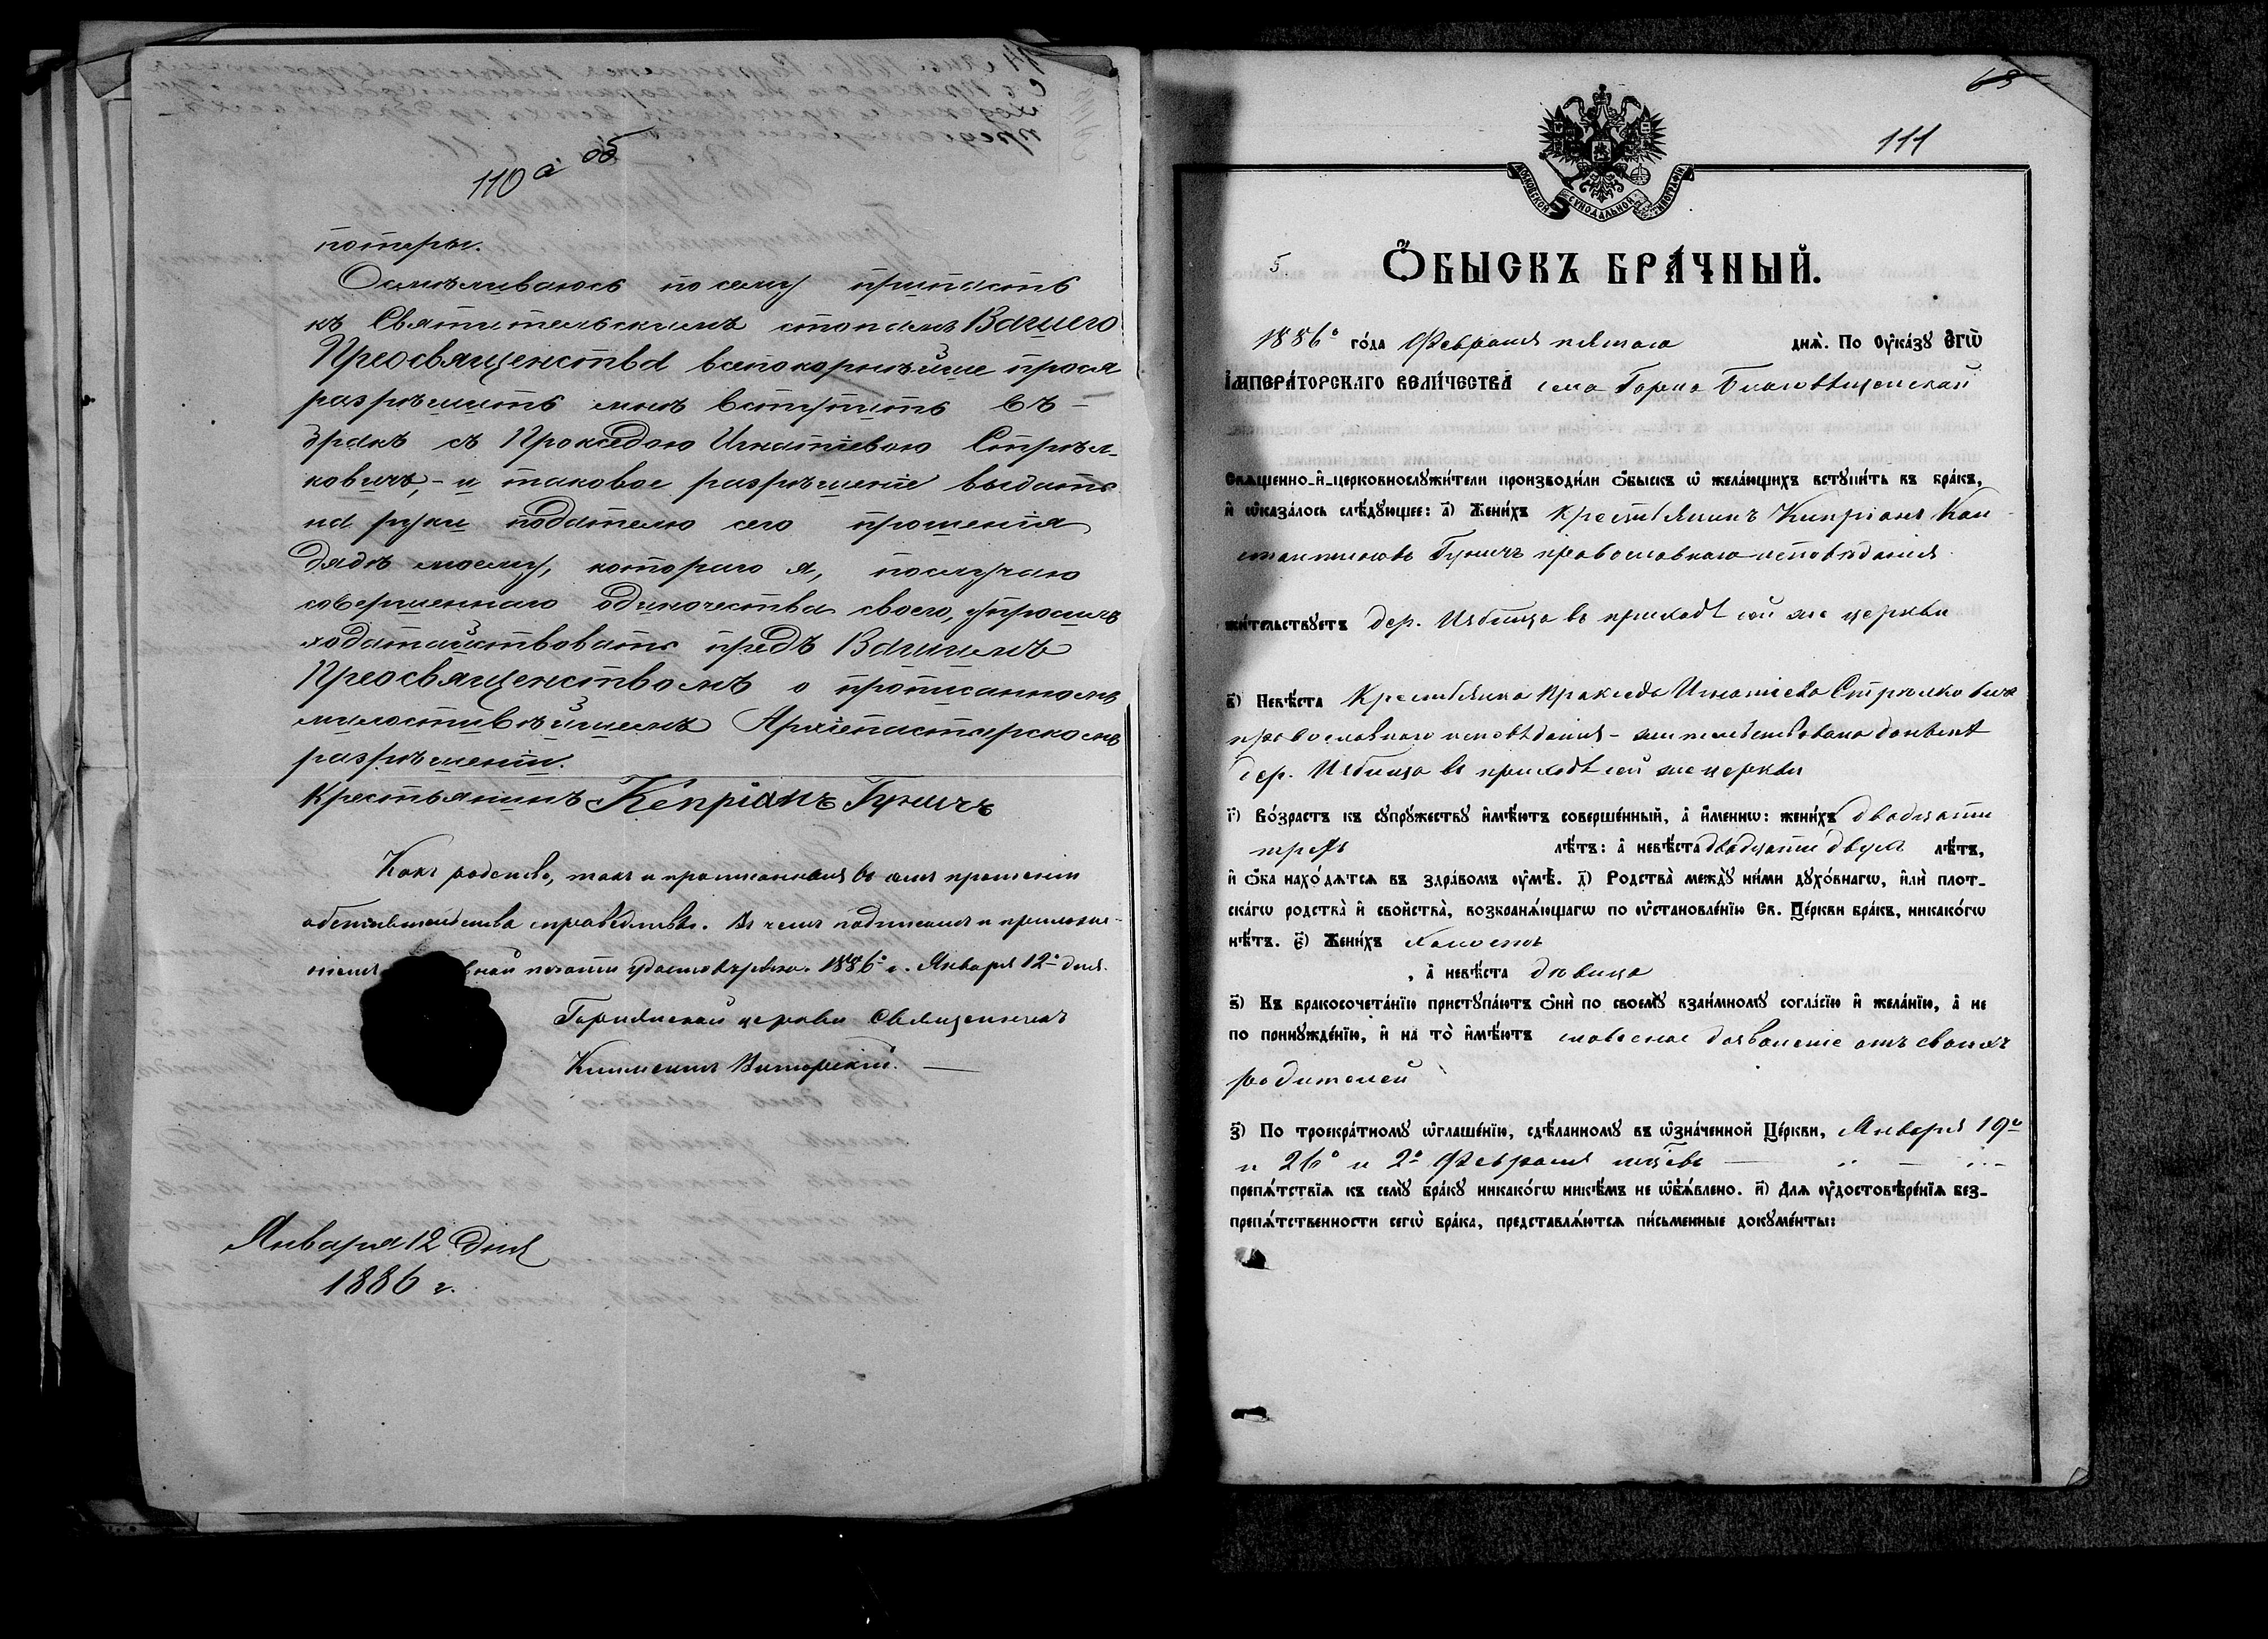 110 а об
потеры.
Осмѣливаюсь по сему припасть
къ Святительскимъ стопамъ Вашего
Преосвященства всепокорнѣйше прося
разрѣшить мнѣ вступить въ
бракъ съ Проксѣдою Игнатіевою Стрѣл-
ковичъ, - и таковое разрѣшеніе выдать
на руки подателю сего прошенія
дядѣ моему, котораго я, послучаю
совершеннаго одиночества своего, упросилъ
ходатайствовать предъ Вашимъ
Преосвященствомъ о прописанномъ
милостивѣйшемъ Архіепастырскомъ
разрѣшеніи.
Крестьянинъ Кепріанъ Гуричъ
Какъ родство, такъ и прописанныя въ семъ прошеніи
обстоятельства справедливы. Въ чемъ подписомъ и приложе-
ніемъ печати удостовѣряю. 1886 г. Января 12 дня.
церкви Священникъ
Климентъ
Января 12 дня
1886 г.
65
111
МОСКОВСКОЙ СѴНОДАЛЬНОЙ ТИПОГРАФІИ
5.
Ѻ҆БЫСКЪ БРА́ЧНЫЙ.
1886о го́да Февраля пятаго днѧ̀. По Ѹ҆ка́зꙋ Є҆гѡ̀
І҆МПЕРА́ТОРСКАГО ВЕЛИ́ЧЕСТВА села Горно Благовѣщенской
Свѧще́нно-и҆-церковнослꙋжи́тели производи́ли ѻ҆́быскъ ѡ҆ жела́ющихъ встꙋпи́ть въ бра́къ,
и҆ ѡ҆каза́лось слѣ́дꙋющее: а҃) Жени́хъ крестьянинъ Кипріанъ Кон
стантиновъ Гуричъ православнаго исповѣданія
жи́тельствꙋетъ дер. Избища въ приходѣ сей же церкви
в҃) Невѣ́ста Крестьянка Праксѣда Игнатіева Стрѣлковичъ
православнаго исповѣданія - жительствовала донынѣ
дер. Избища въ приходѣ сей же церкви
г҃) Во́зрастъ къ сꙋпрꙋ́жествꙋ и҆мѣ́ютъ соверше́нный, а҆ и҆́меннѡ: жени́хъ двадцати
трехъ лѣ́тъ: а҆ невѣ́ста двадцати двухъ лѣ́тъ,
и҆ ѻ҆́ба нахо́дѧтсѧ въ здра́вомъ ѹ҆мѣ̀. д҃) Родства̀ междꙋ̀ ни́ми дꙋхо́внагѡ, и҆лѝ плот-
ска́гѡ родства̀ и҆ сво́йства, возбранѧ́ющагѡ по ѹ҆становле́нїю Св. Це́ркви бра́къ, никако́гѡ
нѣ́тъ. є҃) Жени́хъ холостъ
, а҆ невѣ́ста дѣвица
ѕ҃) Къ бракосочета́нїю пристꙋпа́ютъ ѻ҆нѝ по своемꙋ̀ взаи́мномꙋ согла́сїю и҆ жела́нїю, а҆ не
по принꙋжде́нїю, и҆ на то̀ и҆мѣ́ютъ словесное дозволеніе отъ своихъ
родителей
з҃) По троекра́тномꙋ ѡ҆глаше́нїю, сдѣ́ланномꙋ въ ѡ҆зна́ченной Це́ркви, Января 19о
и 26о и 2о Февраля
препѧ́тствїѧ къ семꙋ̀ бра́кꙋ никако́гѡ никѣ́мъ не ѡ҆б̾ѧ́влено. и҃) Длѧ ѹ҆достовѣре́нїѧ без-
препѧ́тственности сегѡ̀ бра́ка, представлѧ́ютсѧ пи́сьменные докꙋме́нты: